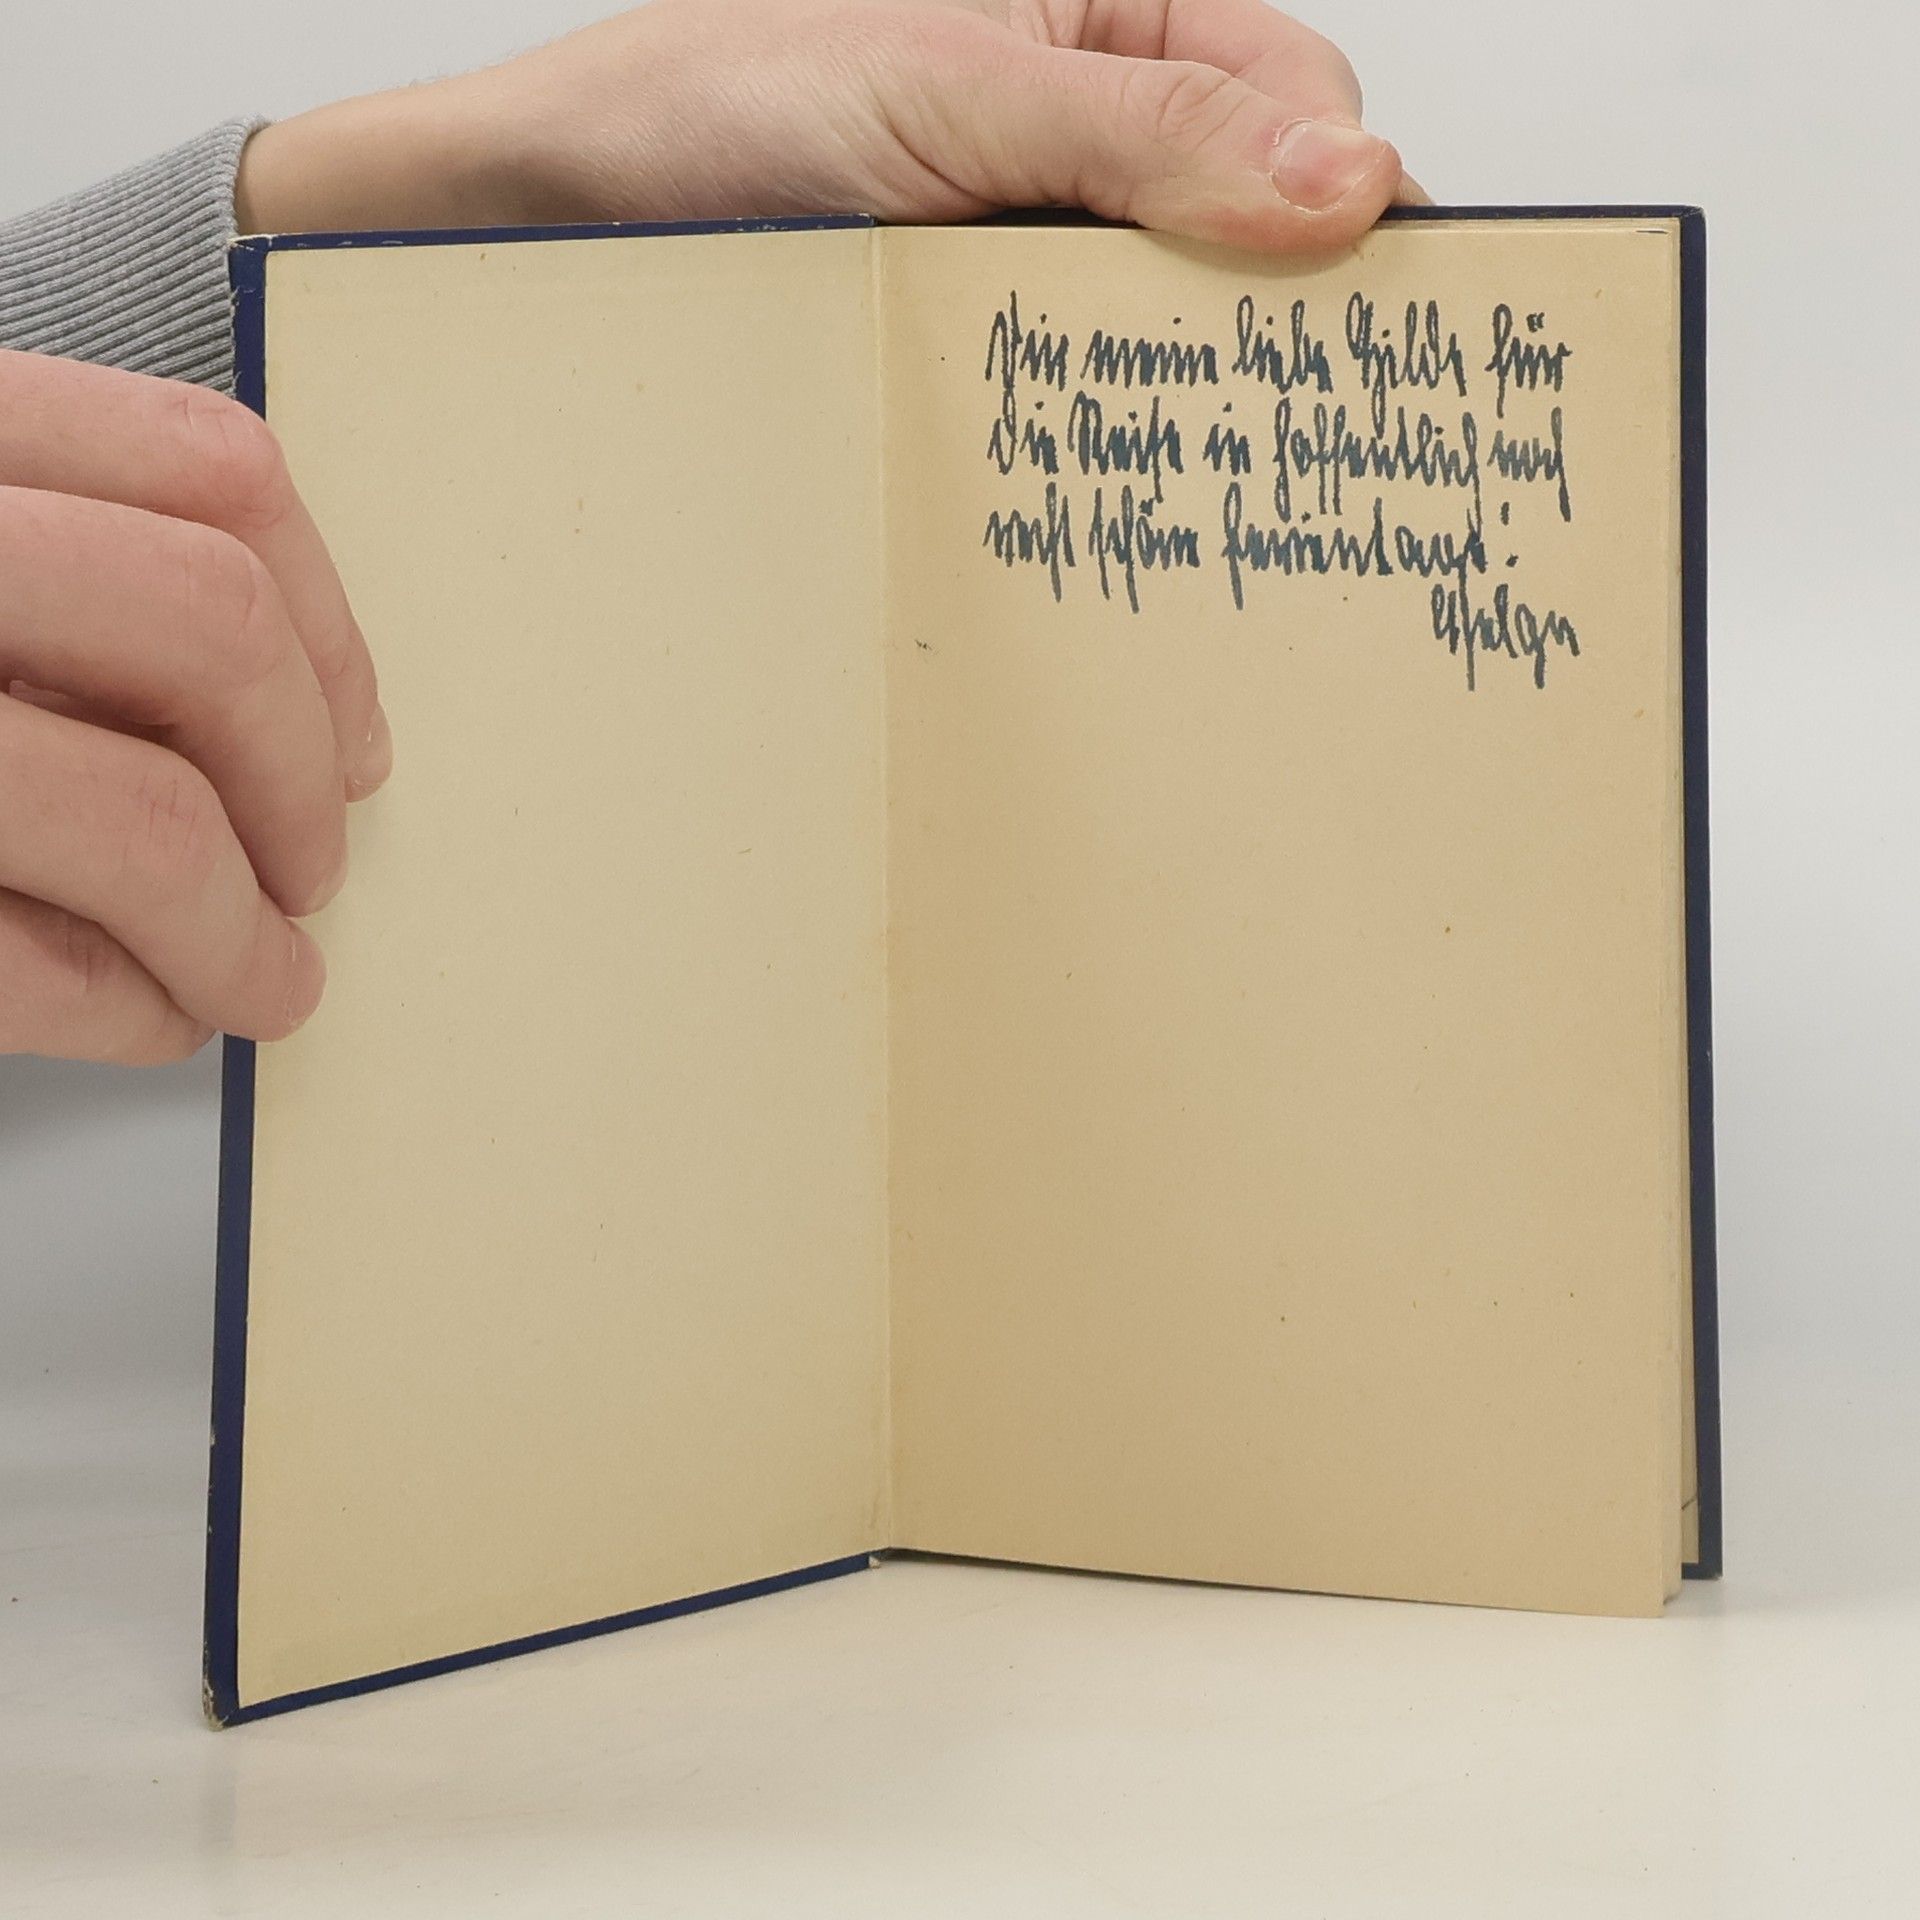 Dir meine liebe Hilde für
die Reise in hoffentlich noch
recht schöne Ferientage!